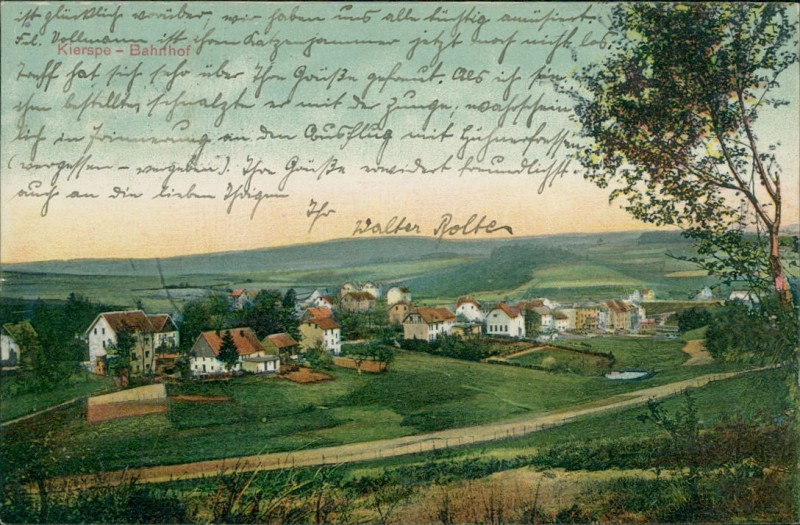 ist glücklich vorüber, wir haben uns alle tüchtig amüsiert.
Frl. Vollmann ist ihren Katzenjammer jetzt noch nicht los.
Kierspe - Bahnhof
hat sich sehr über Ihre Grüße gefreut. Als ich sie
ihm bestellte, schnalzte er mit der Zunge, wahrschein
lich in Erinnerung an den Ausflug mit Hühnerfressen
(vergessen - vergeben). Ihre Grüße erwidert freundlichst
auch an die lieben Ihrigen
Ihr
Walter Rolte